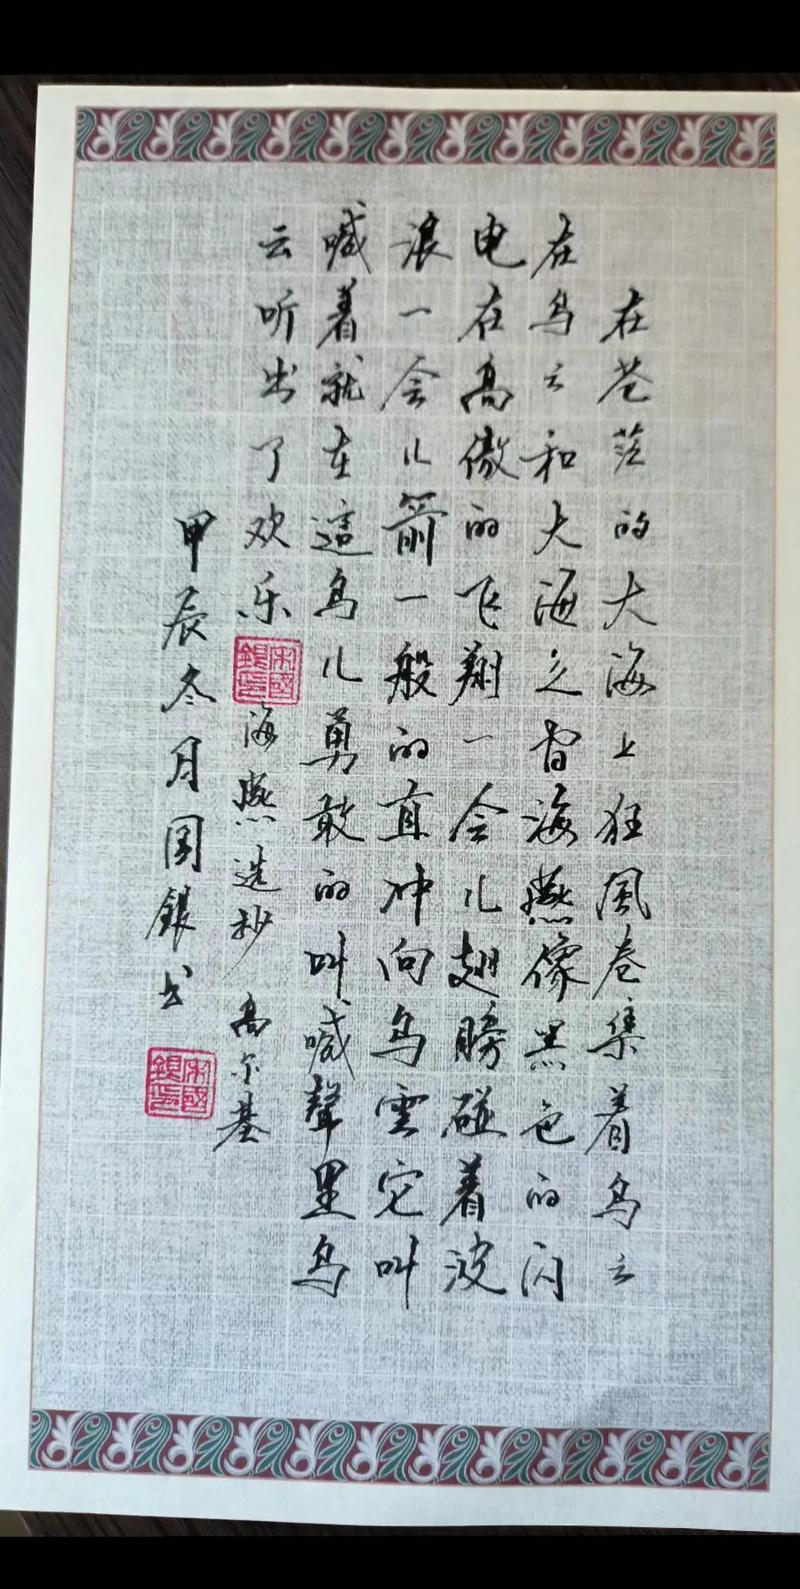 在苍茫的大海上狂風卷集着乌云
在乌云和大海之间海燕像黑色的闪
电在高傲的飞翔一会儿翅膀碰着波
浪一会儿箭一般的直冲向乌雲它叫
喊着就在這鸟儿勇敢的叫喊聲里乌
云听出了欢乐
宋國銀印
海燕选抄 高尔基
甲辰冬月国銀书
宋國銀印